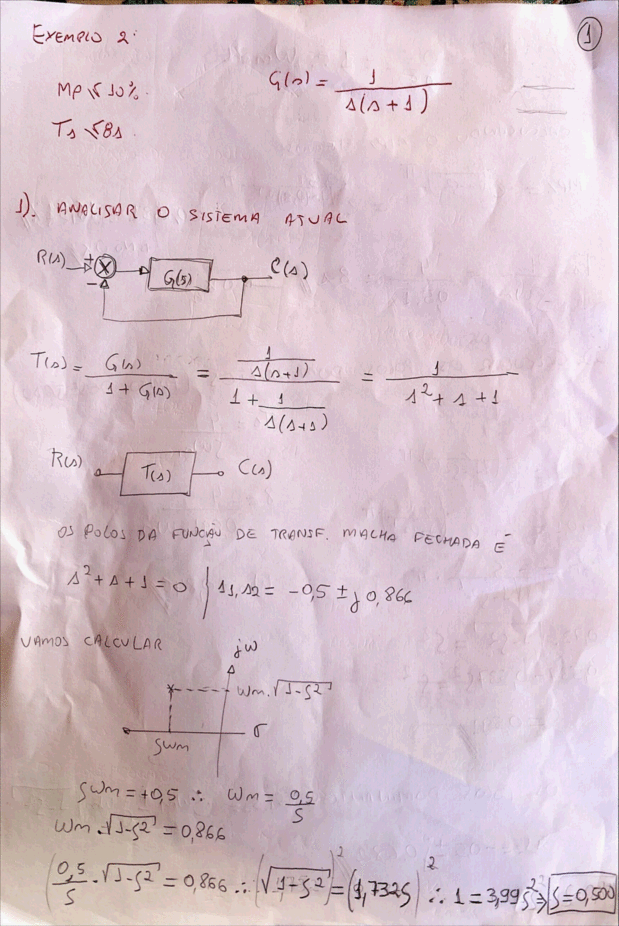 EXEMPLO 2: ①
Mp ≤ 10%. G(s) = 1 / s(s+1)
Ts ≤ 8s.
1). ANALISAR O SISTEMA ATUAL
R(s) + − G(s) C(s)
T(s) = G(s) / 1 + G(s) = (1 / s(s+1)) / (1 + 1 / s(s+1)) = 1 / s² + s + 1
R(s) T(s) C(s)
OS POLOS DA FUNÇÃO DE TRANSF. MALHA FECHADA É
s² + s + 1 = 0 | s1, s2 = -0,5 ± j 0,866
VAMOS CALCULAR jω
ωm.√1-ζ²
σ
ζωm
ζωm = +0,5 ∴ ωm = 0,5 / ζ
ωm.√1-ζ² = 0,866
(0,5 / ζ .√1-ζ² = 0,866 ∴ (√1-ζ²)² = (1,732ζ)² ∴ 1 = 3,99ζ² ⇒ ζ = 0,500